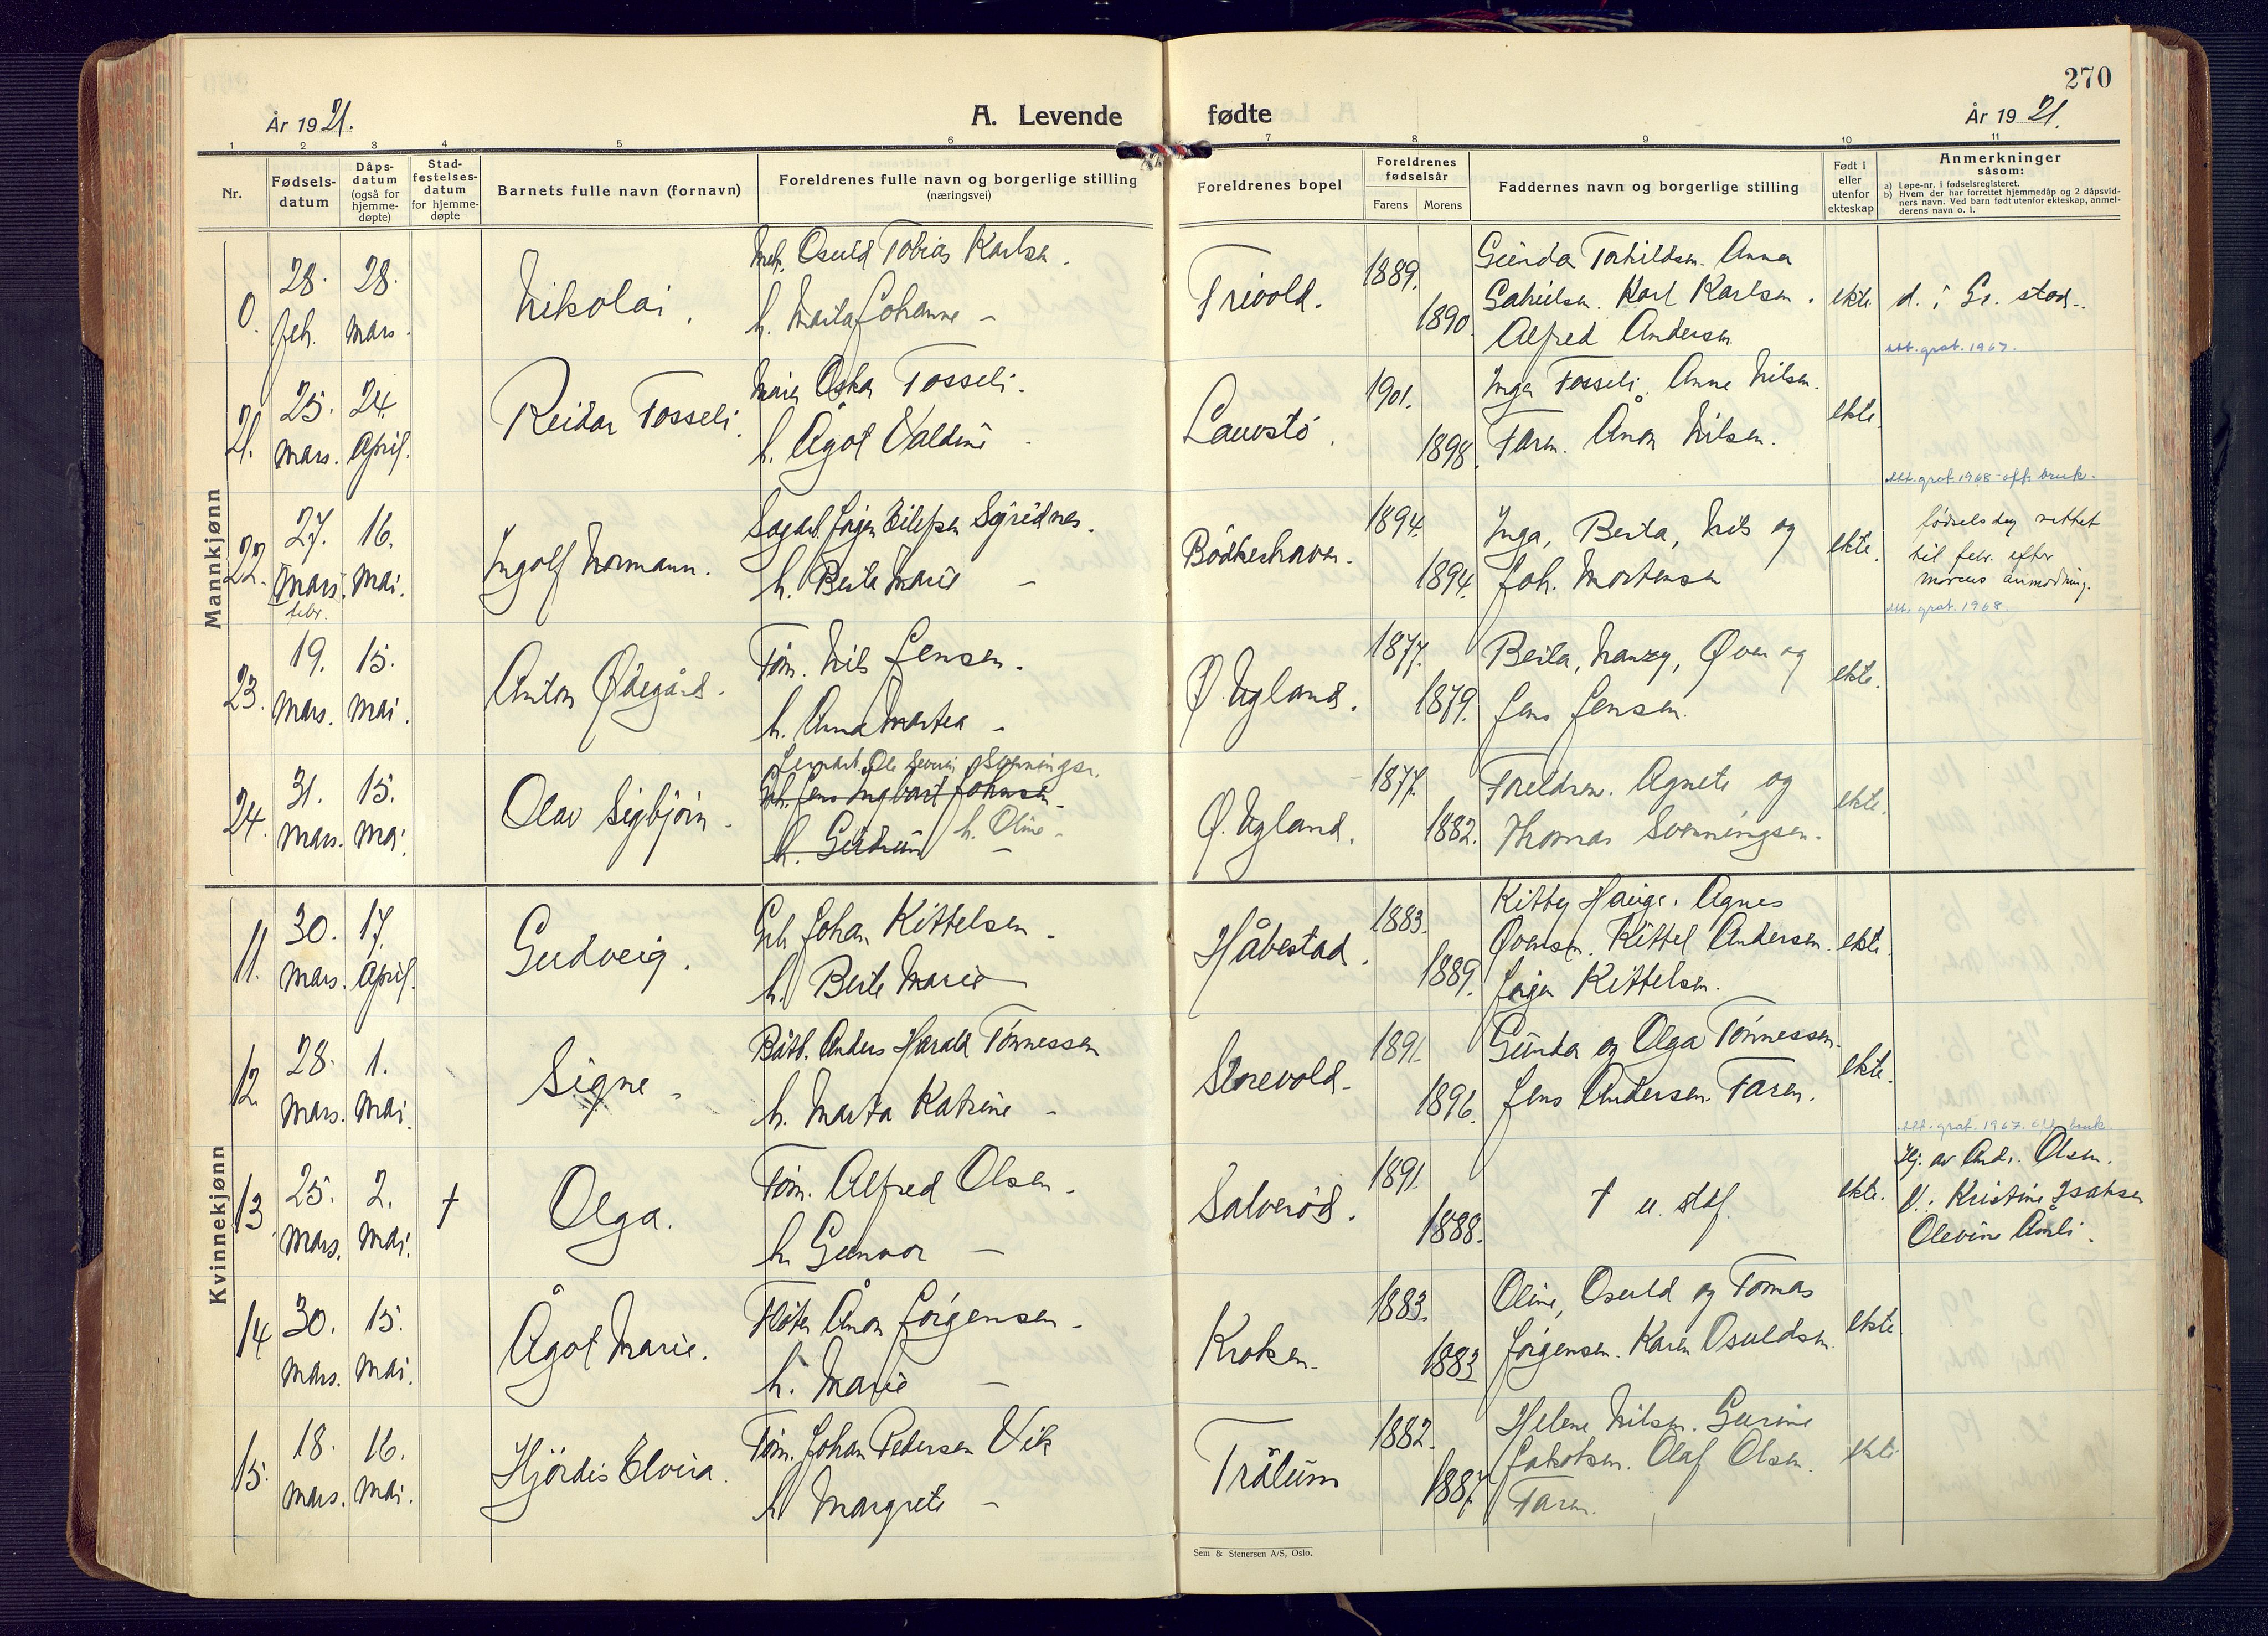 270
År 1921.
A. Levende
fødte
År 1921.
1 2 3 4 5 6 7 8 9 10 11
Nr.
Fødsels-
datum
Dåps-
datum
(også for
hjemme-
døpte)
Stad-
festelses-
datum
for hjemme-
døpte
Barnets fulle navn (fornavn)
Foreldrenes fulle navn og borgerlige stilling
(næringsvei)
Foreldrenes bopel
Foreldrenes
fødselsår
Farens Morens
Faddernes navn og borgerlige stilling
Født i
eller
utenfor
ekteskap
Anmerkninger
såsom:
a) Løpe-nr. i fødselsregisteret.
b) Hvem der har forrettet hjemmedåp og 2 dåpsvid-
ners navn. Ved barn født utenfor ekteskap, anmel-
derens navn o. l.
Mannkjønn
0.
28. feb.
28. mars.
Nikolai.
Osuld Tobias Karlsen.
h. Marta Johanne –
Trivold.
1889.
1890.
Gunda Torhildsen. Anna
Karl Karlsen.
Alfred Andersen
ekte.
d. i Gr. stad.
att. grat. 1967.
21.
25. mars.
24. April.
Reidar Fosseli.
Oskar Fosseli.
h. Ågot Valdine
Lauvstö.
1901.
1898.
Inga Fosseli. Anne Nilsen.
Faren. Ånon Nilsen.
ekte.
att. grat. 1968 – off. bruk.
22.
27. mars.
febr.
16. mai.
Ingolf Normann.
Sagarb. Jørgen Eilefsen Sigridnes.
h. Berte Marie –
Bödkerhaven.
1894.
1894.
Inga, Berta, Nils og
Joh. Mortensen
ekte.
fødselsdag rettet
til febr. efter
morens anmodning.
att. grat. 1968.
23.
19. mars.
15. mai.
Anton Ødegård.
Tøm. Nils Jensen.
h. Anna Martea –
Ø. Ugland.
1877.
1879.
Berta, Nanzy, Øven og
Jens Jensen.
ekte.
24.
31. mars.
15. mai.
Olav Sigbjörn.
Ole Severin Svenningsen.
Gbr. Jens Ingvart Johnsen.
h. Gudrun h. Oline –
Ø. Ugland.
1877.
1882.
Foreldrene. Agnete og
Thomas Svenningsen.
ekte.
Kvinnekjønn
11.
30. mars.
17. April.
Gudveig.
Gbr. Johan Kittelsen.
h. Berte Marie
Håbestad.
1883.
1889.
Kitty Hauge. Agnes
Øvensen. Kittel Andersen.
Jørgen Kittelsen.
ekte.
12
28. mars.
1. mai.
Signe –
Båtb. Anders Harald Tönnessen
h. Marta Katrine –
Storevold.
1891.
1896.
Gunda og Olga Tönnessen.
Jens Andersen. Faren.
ekte.
att. grat. 1967. off. bruk.
13
25. mars.
2. mai.
†
Olga.
Tøm. Alfred Olsen.
h. Gunvor –
Salveröd.
1891.
1888.
† u. staf.
ekte.
Hj. av Andr. Olsen.
V: Kristine Isaksen
Olevine Åmli.
14
30. mars.
15. mai.
Ågot Marie.
Fløter Ånon Jörgensen.
h. Marie –
Kroken.
1883.
1883
Oline, Osuld og Tomas
Jörgensen. Karen Osuldsen.
ekte
15.
18. mars.
16. mai.
Hjördis Elvira.
Tøm. Johan Pedersen Vik
h. Margrete –
Trålum
1882.
1887.
Helene Nilsen. Gurine
Jakobsen. Olaf Olsen.
Faren.
ekte
Sem & Stenersen A/S, Oslo.